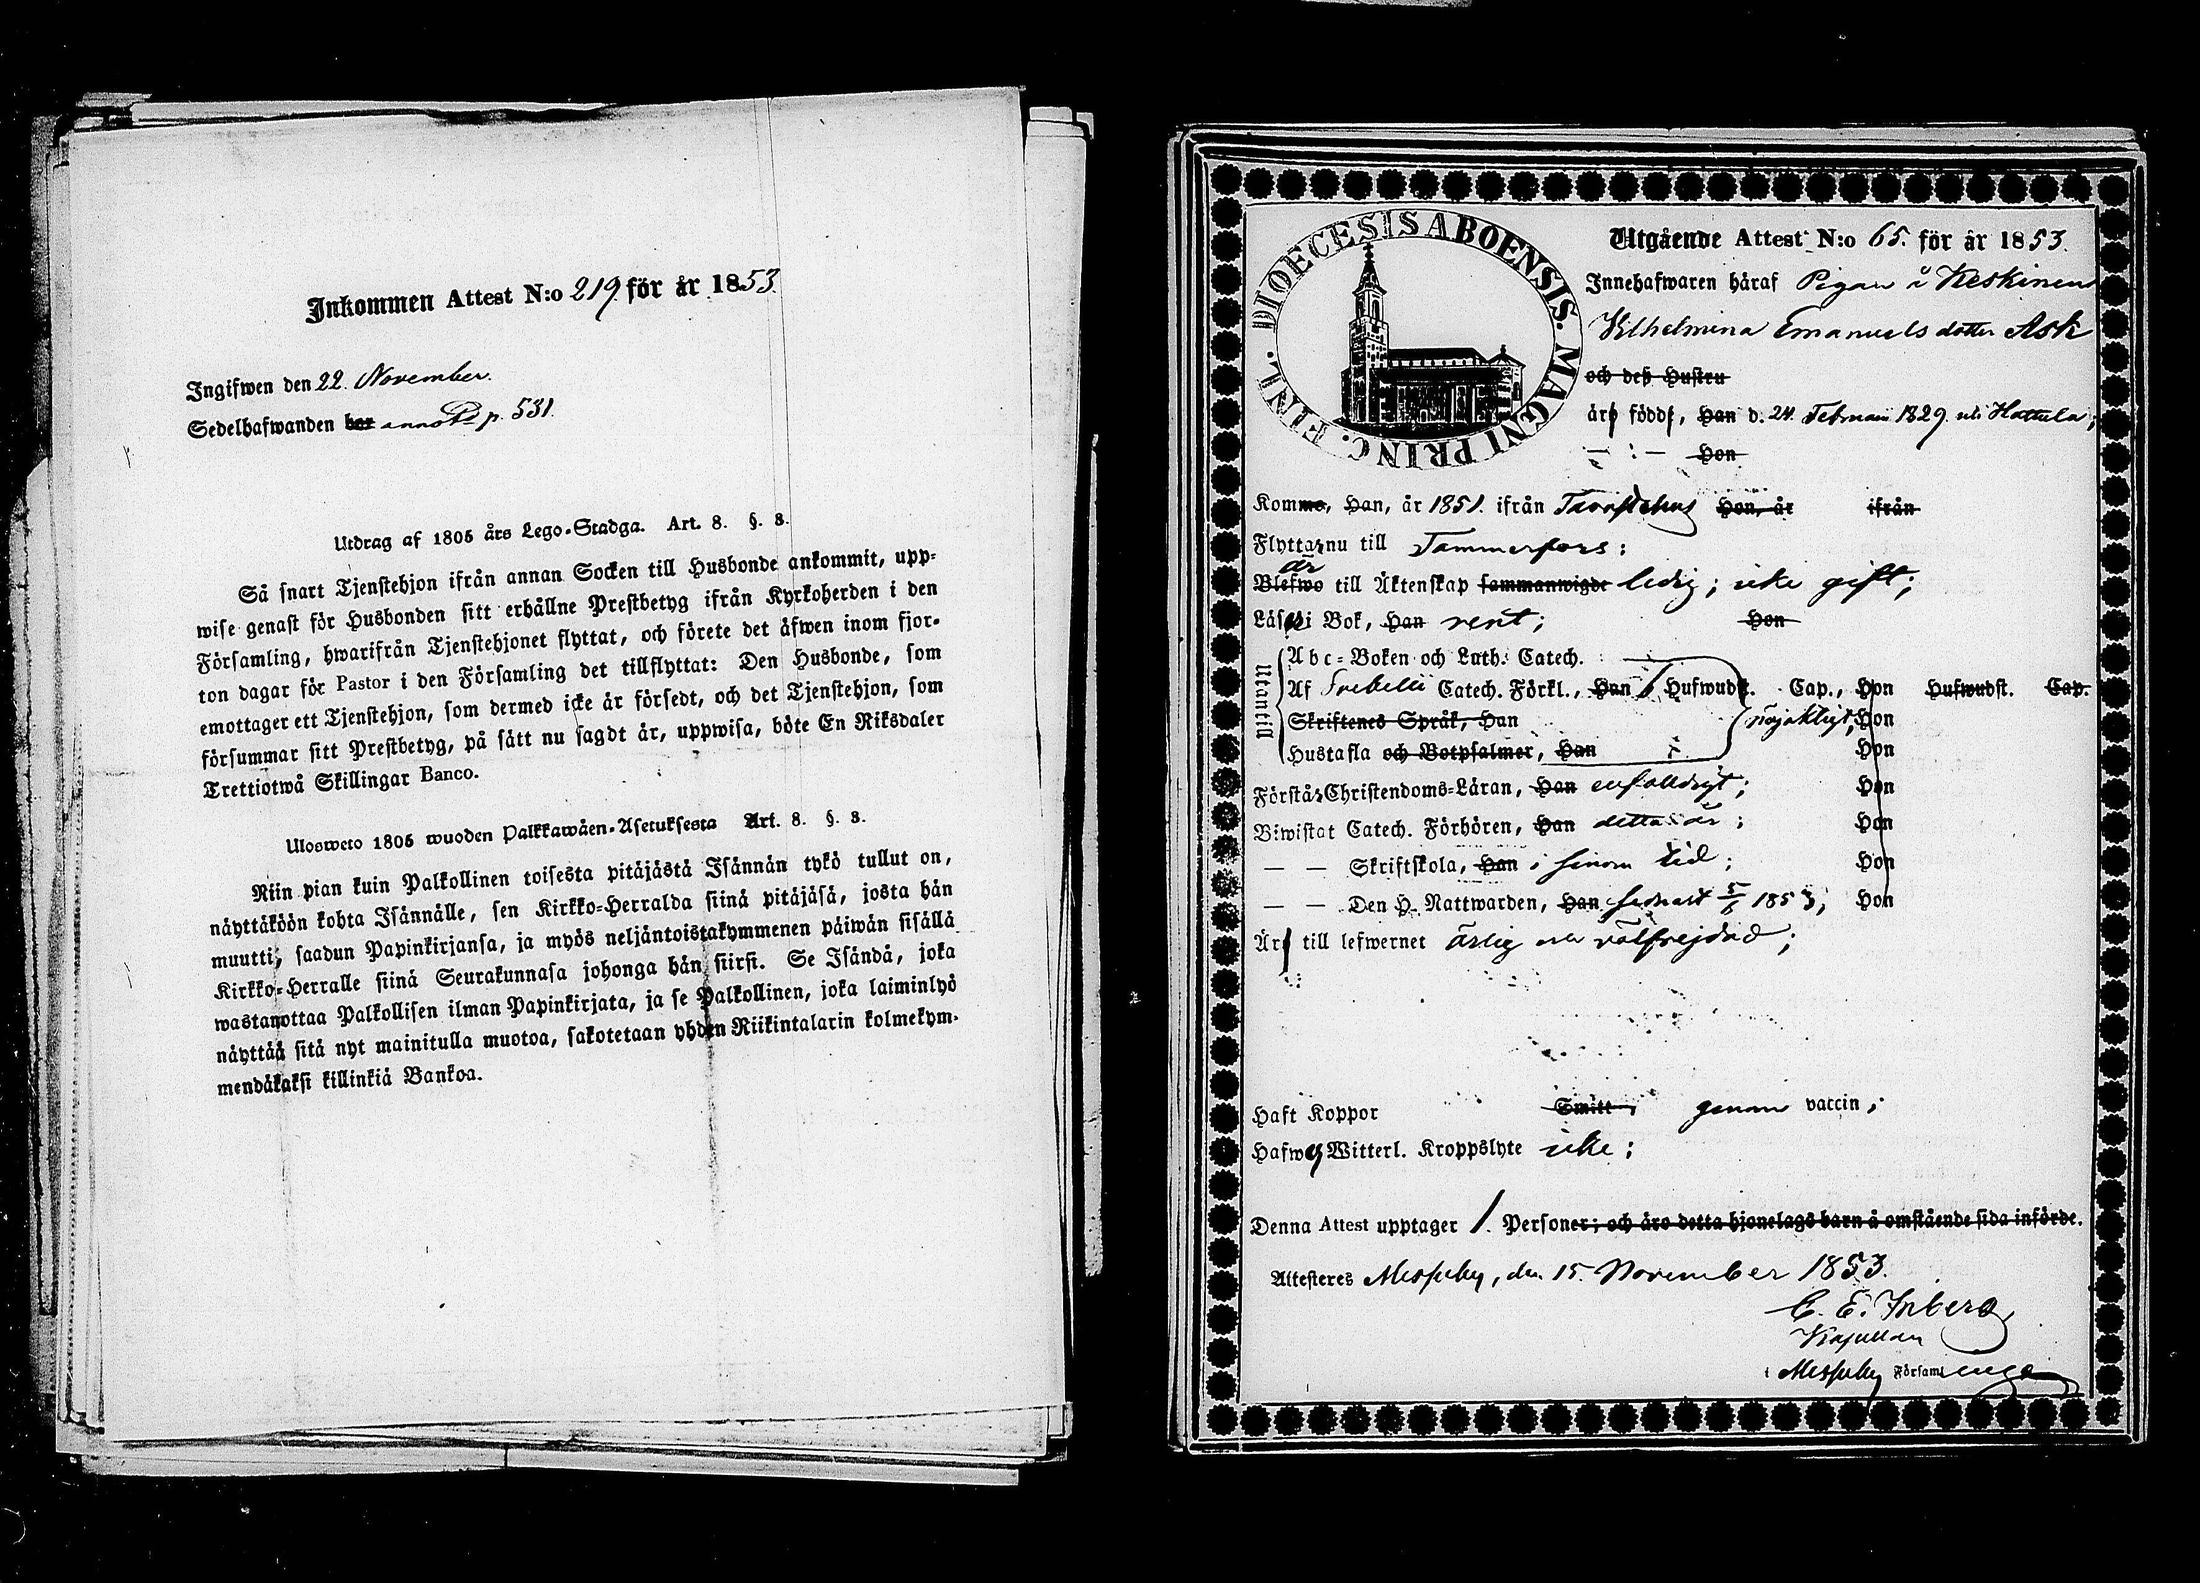 Inkommen Attest N:o 219. för år 1853.
Ingifwen den 22. November.
Sedelhafwanden bor anno p. 531.
Utdrag af 1805 års Lego-Stadga. Art. 8. §. 8.
Så snart Tjenstehjon ifrån annan Socken till Husbonde ankommit, upp-
wise genast för Husbonden sitt erhållne Prestbetyg ifrån Kyrkoherden i den
Församling, hwarifrån Tjenstehjonet flyttat, och förete det äfwen inom fjor-
ton dagar för Pastor i den Församling det tillflyttat: Den Husbonde, som
emottager ett Tjenstehjon, som dermed icke är försedt, och det Tjenstehjon, som
försummar sitt Prestbetyg, på sätt nu sagdt är, uppwisa, böte En Riksdaler
Trettiotwå Skillingar Banco.
Ulosweto 1805 wuoden Palkkawäen-Asetuksesta Art. 8. §. 8.
Niin pian kuin Palkollinen toisesta pitäjästä Isännän tykö tullut on,
näyttäköön kohta Isännälle, sen Kirkko-Herralda siinä pitäjäsä, josta hän
muutti, saadun Papinkirjansa, ja myös neljäntoistakymmenen päiwän sisällä
Kirkko-Herralle siinä Seurakunnasa johonga hän siirsi. Se Isändä, joka
wastanottaa Palkollisen ilman Papinkirjata, ja se Palkollinen, joka laiminlyö
näyttää sitä nyt mainitulla muotoa, sakotetaan yhden Riikintalarin kolmekym-
mendäkaksi killinkiä Bankoa.
DIOECESIS ABOENSIS. MAGNI PRINC. FINL.
Utgående Attest N:o 65. för år 1853.
Innehafwaren häraf Pigan å Keskinen
Vilhelmina Emanuelsdotter Ask
och deß Hustru
är född, Han d. 24. Februari 1829. uti Hattula;
— : — Hon
Komme, Han, år 1851. ifrån Tavastehus Hon, år ifrån
Flyttar nu till Tammerfors:
är
Blefwo till Äktenskap sammanwigde ledig; icke gift;
Läser i Bok, Han rent; Hon
Utantill
Abc-Boken och Luth. Catech.
Af Svebelii Catech. Förkl., Han Hufwudst. Cap., Hon Hufwudst. Cap.
Skriftenes Språk, Han nöjaktigt, Hon
Hustafla och Botpsalmer, Han Hon
Förstår Christendoms-Läran, Han enfaldigt; Hon
Biwistat Catech. Förhören, Han detta år; Hon
— — Skriftskola, Han i sinom tid; Hon
— — Den H. Nattwarden, Han sednast 5/6 1853; Hon
Är till lefwernet ärlig och välfrejdad;
Haft Koppor Smitt genom vaccin;
Hafwer Witterl. Kroppslyte icke;
Denna Attest upptager 1. Personer; och äro detta hjonelags barn å omstående sida införde.
Attesteres Messuby, den 15. November 1853.
C. E. Inberg,
Kapellan
i Messuby Församlingen